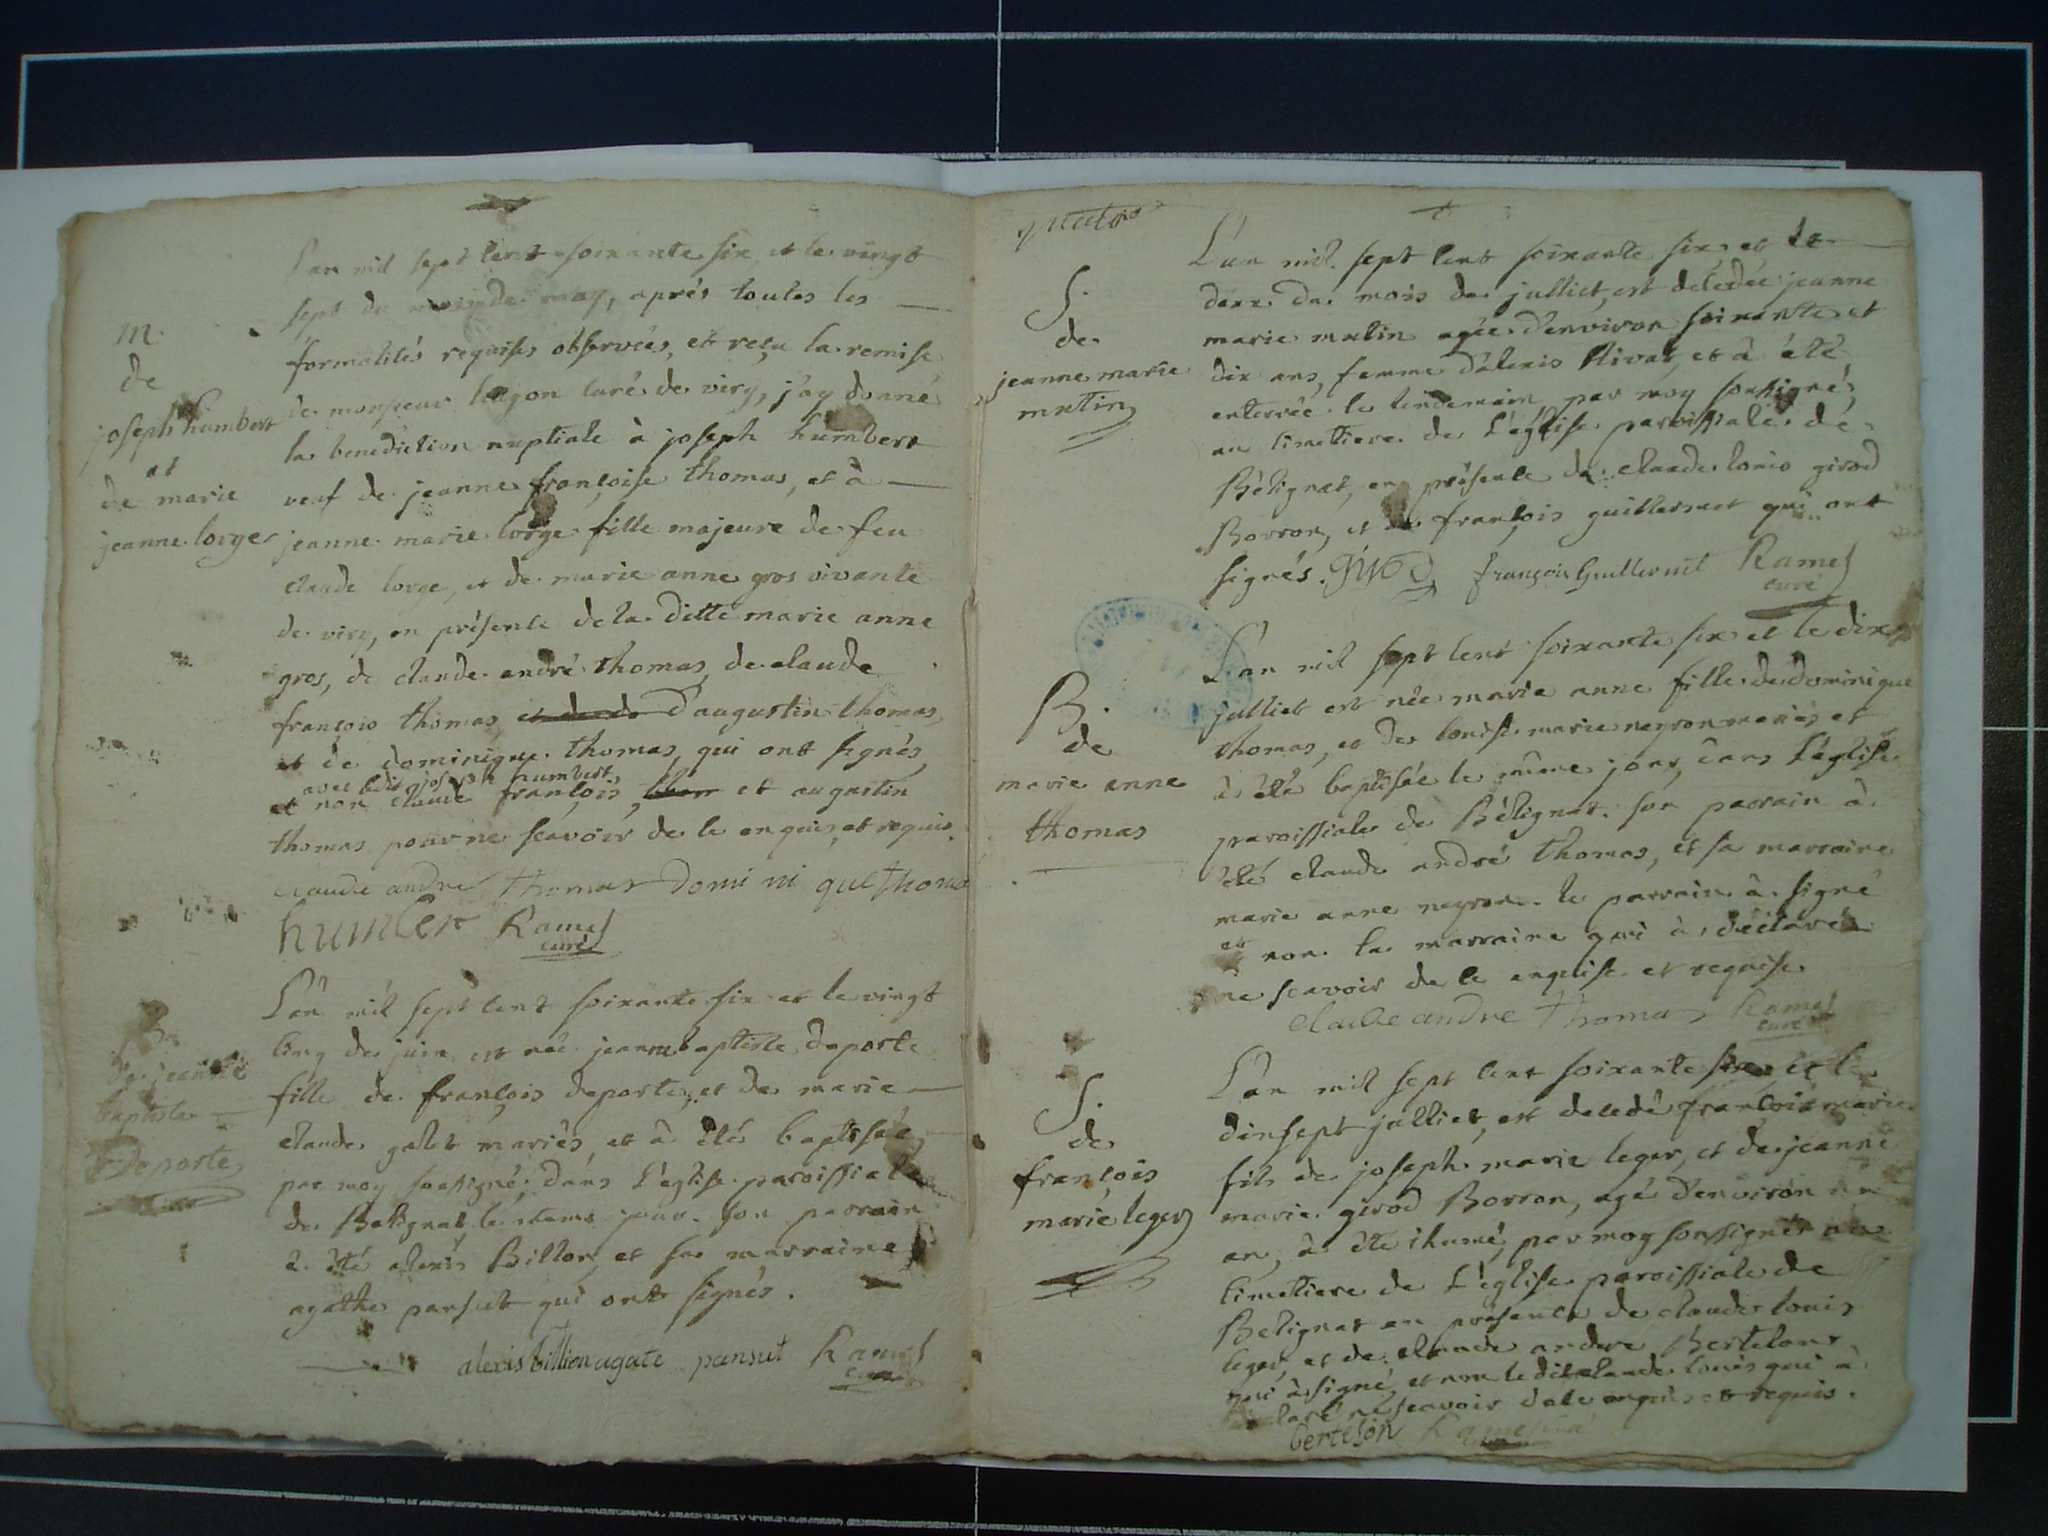 L'an mil sept cent soixante six et le vingt
sept du mois de may, après toutes les
formalités requises observées, et reçu la remise
de monsieur curé de viry, j'ay donné
la benediction nuptiale à joseph humbert
veuf de jeanne françoise thomas, et à
jeanne marie lorge fille majeure de feu
claude lorge, et de marie anne gros vivante
de viry, en présence de la ditte marie anne
gros, de claude andré thomas, de claude
françois thomas, d'augustin thomas,
et de dominique thomas, qui ont signés,
avec ledit joseph humbert,
et non claude françois, et augustin
thomas pour ne sçavoir de ce enquis, et requis.
claude andre thomas domi ni que thoma
humber Ramel
curé
m.
de
joseph humbert
et
de marie
jeanne lorge
L'an mil sept cent soixante six et le vingt
cinq de juin est née jeanne baptiste deporte
fille de françois deporte, et de marie
claude galet mariés, et à été baptisée
par moy soussigné, dans l'église paroissiale
de Belignat, le meme jour. son parrain
à été alexis Billon, et sa marraine
agathe pansut qui ont signés.
alexis billion agate pansut Ramel
curé
B.
de jeanne
baptiste
Deporte
quatre
L'an mil sept cent soixante six et le
deux du mois de julliet, est décédée jeanne
marie mutin agée d'environ soixante et
dix ans, femme d'alexis Nivat et à été
enterrée le lendemain par moy soussigné,
au cimetiere de l'église paroissiale de
Bélignat, en présence de claude louis girod
Borron, et de françois guillermet qui ont
signés. françois Guillermet Ramel
curé
S.
de
jeanne marie
mutin
L'an mil sept cent soixante six et le dix
julliet est née marie anne fille de dominique
thomas, et de louise marie neyron mariés et
à été baptisée le même jour, dans l'église
paroissiale de Bélignat. son parrain à
été claude andré thomas, et sa marraine
marie anne neyron. le parrain à signé
et non la marraine qui à déclaré
ne scavoir de ce enquise et requise.
claude andre thomas Ramel
curé
B.
de
marie anne
thomas
L'an mil sept cent soixante six et le
dixsept julliet, est decedé françois marie
fils de joseph marie leger, et de jeanne
marie girod Borron, agé d'environ un
an, à été ihumé, par moy soussigné au
cimetiere de l'église paroissiale de
Belignat en présence de claude louis
leger, et de claude andre Bertelon
qui à signé, et non le dit claude louis qui à
declaré ne scavoir de ce enquis et requis.
bertelon Ramel curé
S.
de
françois
marie leger